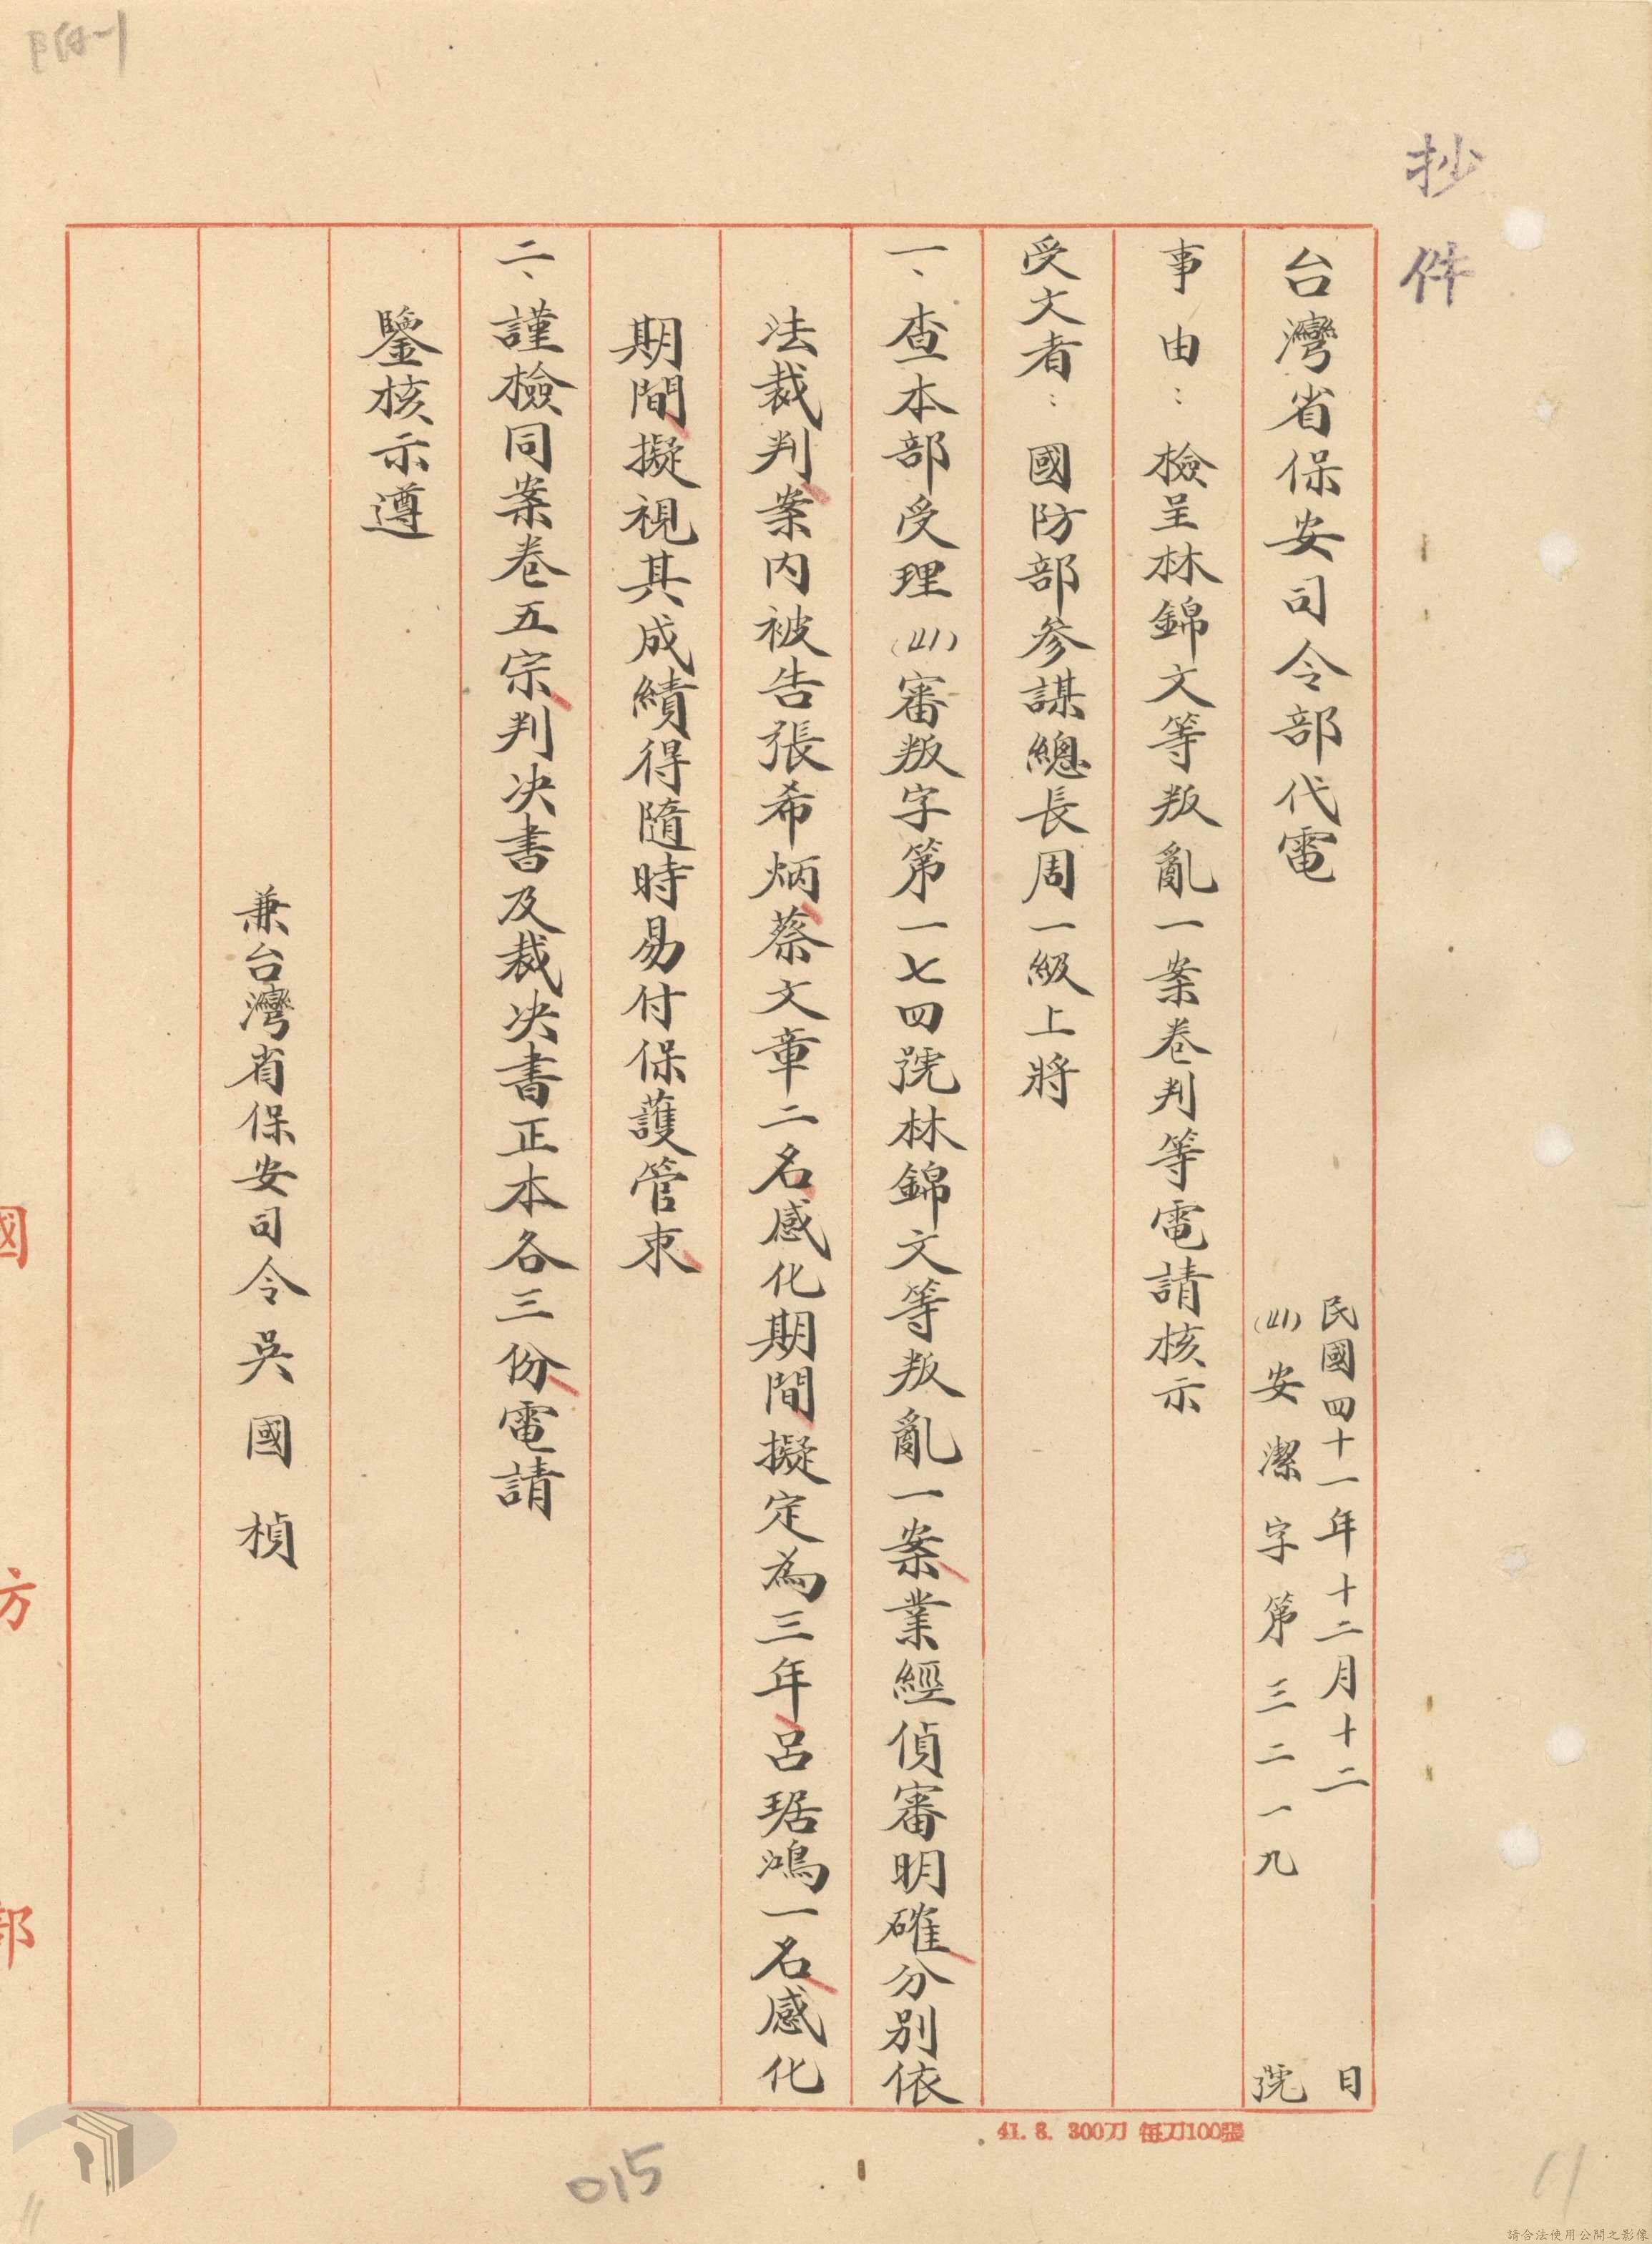 附一
抄件
台灣省保安司令部代電
民國四十一年十二月十二日
(41)安潔字第三二一九號
事由：檢呈林錦文等叛亂一案卷判等電請核示
受文者：國防部參謀總長周一級上將
一、查本部受理(41)審叛字第一七四號林錦文等叛亂一案業經偵審明確分別依
法裁判案內被告張希炳蔡文章二名感化期間擬定為三年呂琚鴻一名感化
期間擬視其成績得隨時易付保護管束
二、謹檢同案卷五宗判决書及裁决書正本各三份電請
鑒核示遵
兼台灣省保安司令吳國楨
國 方 部
41. 8. 300刀 每刀100張
015
11
請合法使用公開之影像